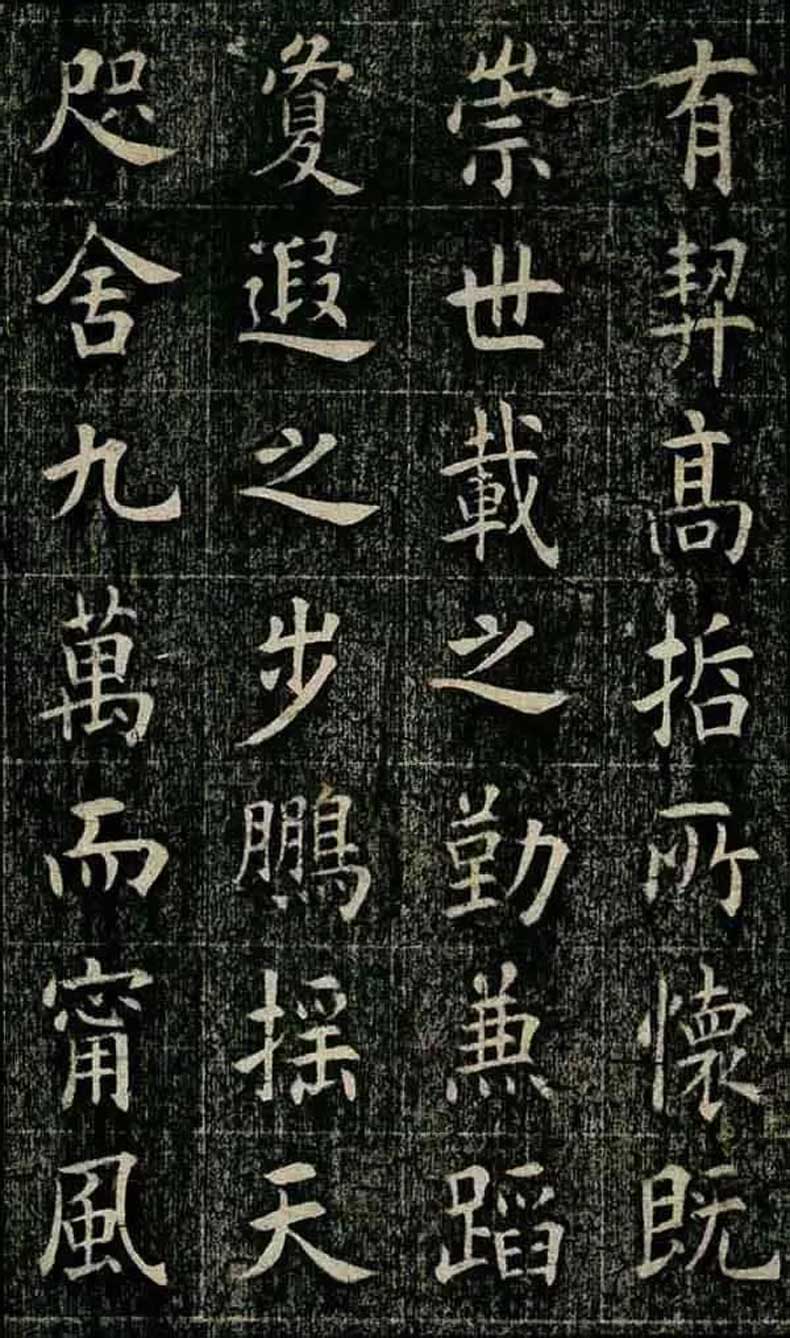 有契高哲所懷既
崇世載之勤兼蹈
敻遐之步鵬搖天
咫舍九萬而甯風